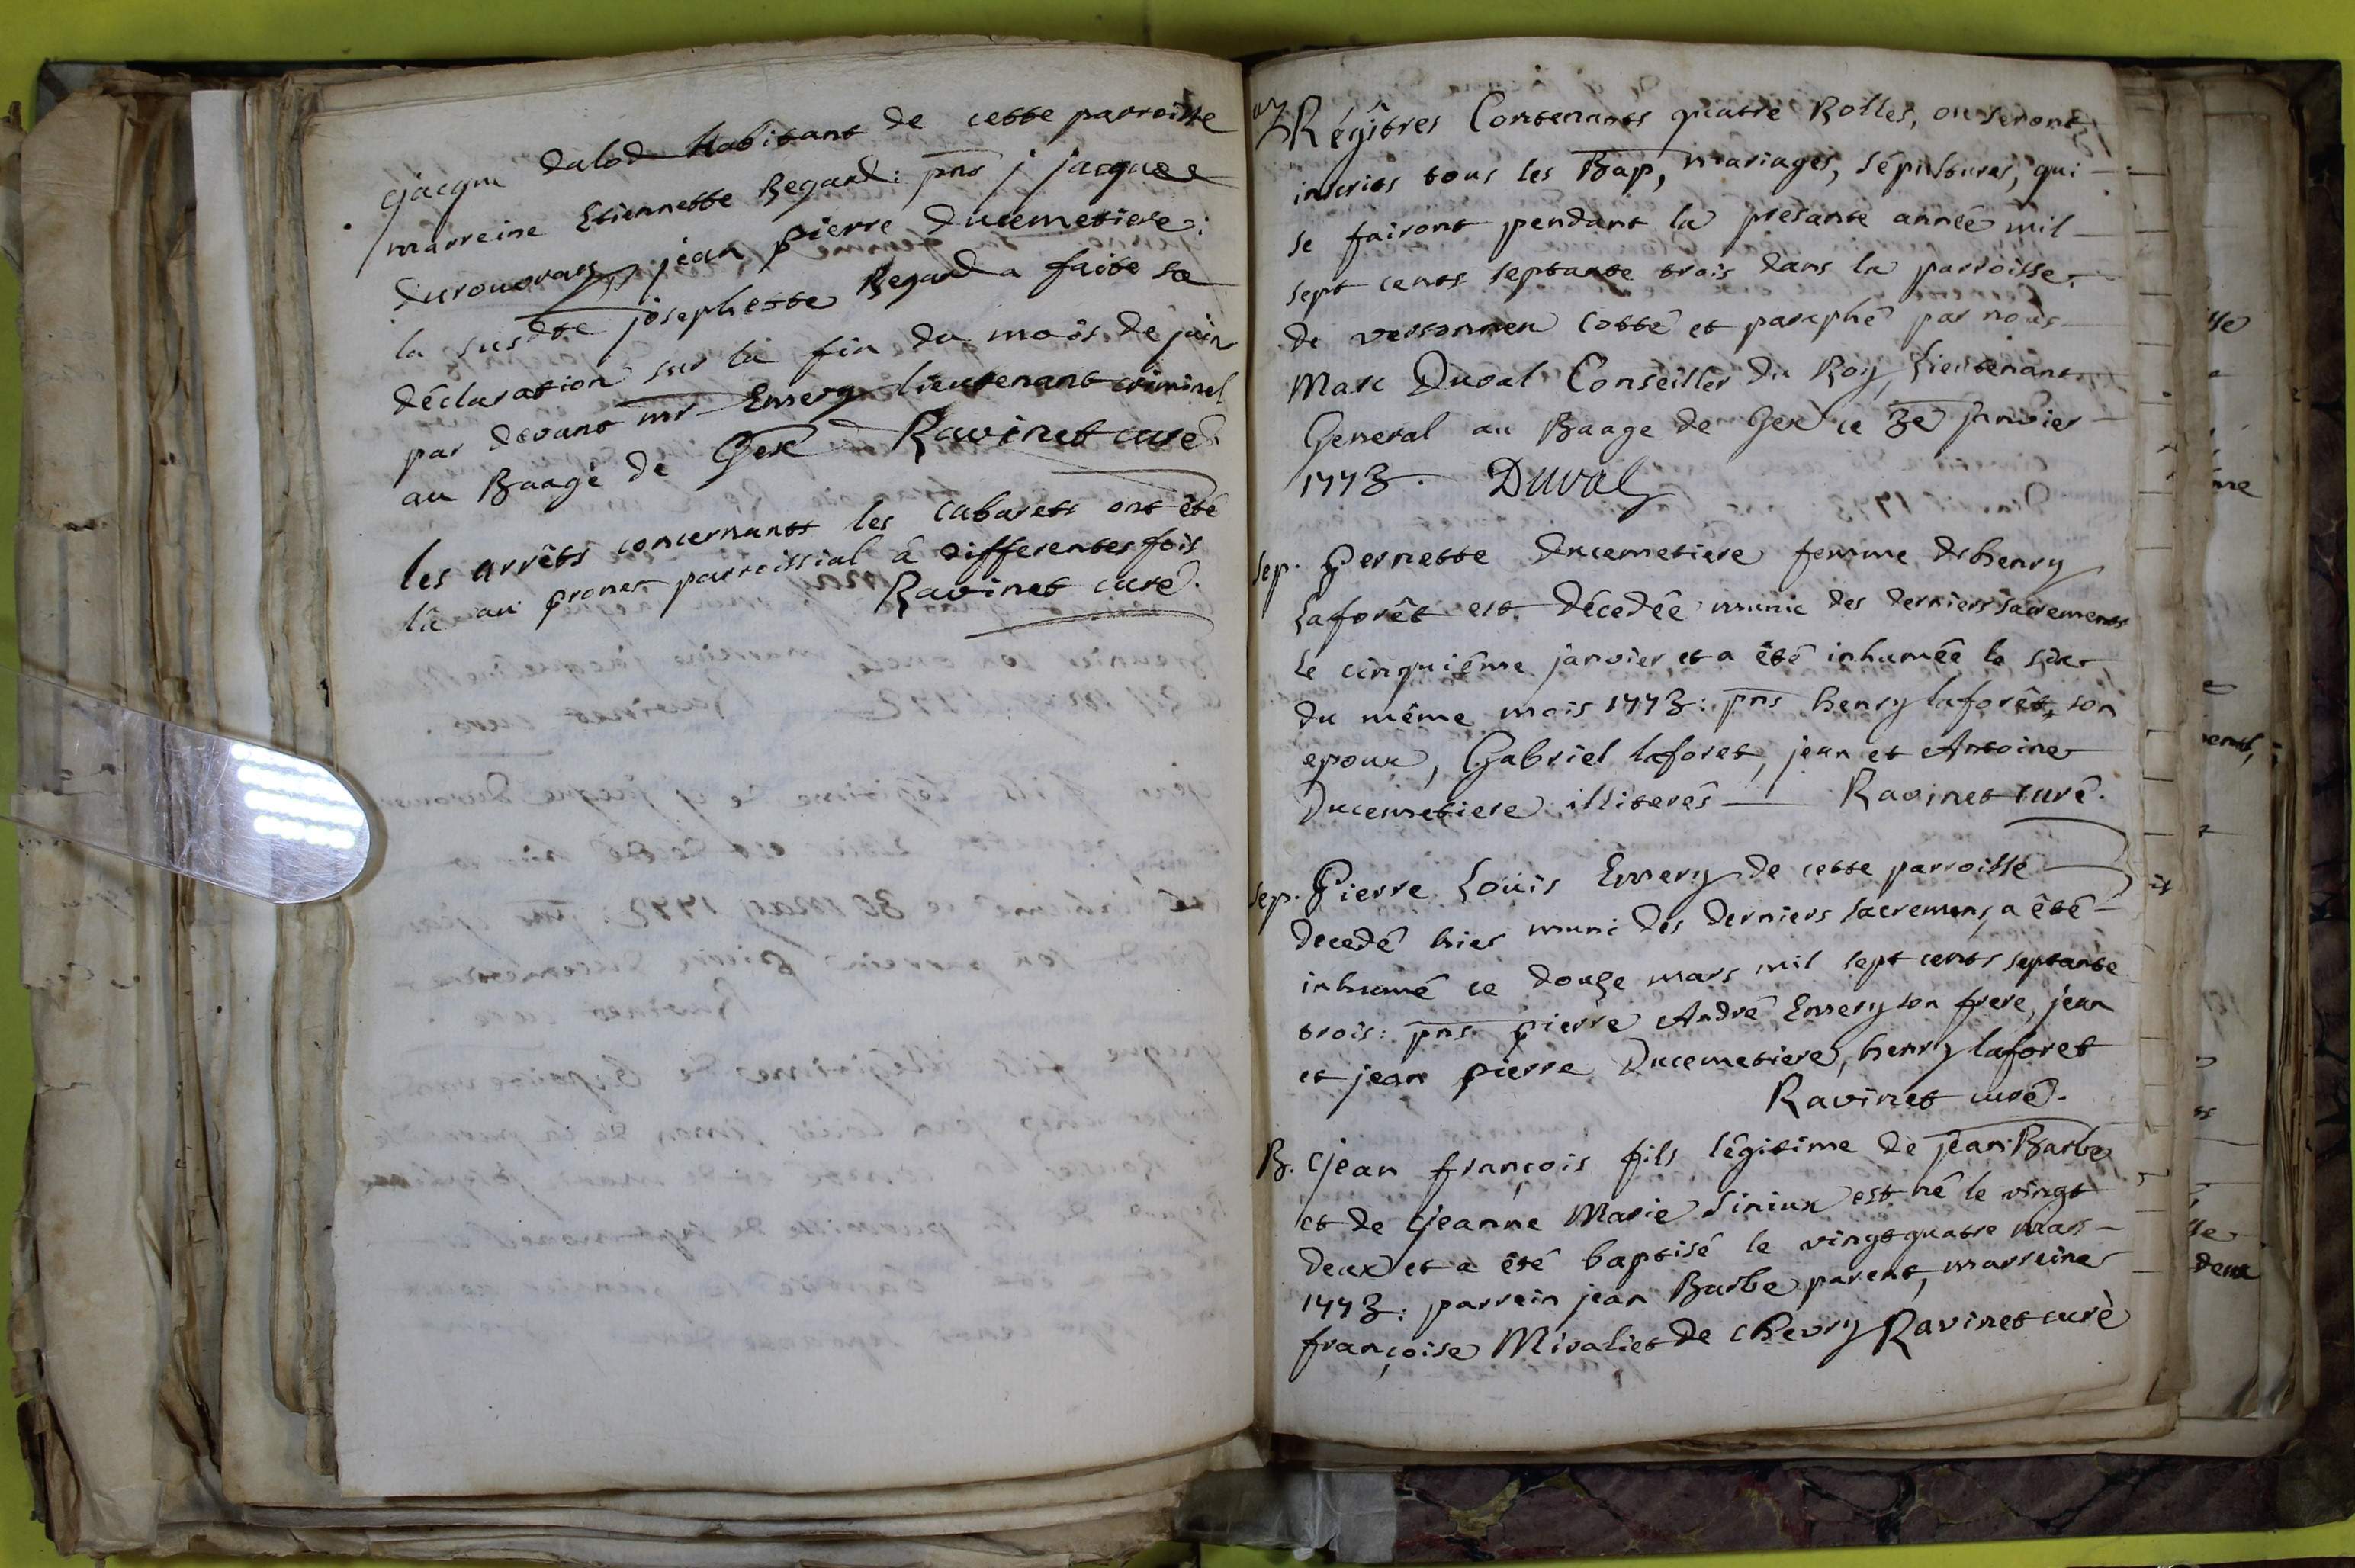 jacque dalod habitant de cette parroisse
marreine Etiennette Regard: pns j jacques
durouvray jean pierre ducemetiere:
la susdte josephette Regard a faite sa
déclaration sur la fin du mois de juin
par devant mr Emery lieutenant criminel
au Baage de Gex Ravinet curé
les arrêts concernants les cabarets ont été
lu au prones parroissial à differentes fois
Ravinet curé.
Régîtres Contenants quatre Rolles, ou seront
inscrits tous les Bap, mariages, sépultures, qui
se fairont pendant la presante année mil
sept cents septante trois dans la parroisse
de versonnex cotté et paraphé par nous
Marc Duval Conseiller du Roy, Lieutenant
General au Baage de Gex ce 3e janvier
1773. Duval
Sep. Pernette ducemetiere femme de henry
Laforêt est décedée munie des derniers sacrements
le cinquiême janvier et a été inhumée le six
du même mois 1773: pns henry laforêt, son
epoux, Gabriel laforet, jean et Antoine
Ducemetiere illiterés Ravinet curé.
sep. Pierre Loüis Emery de cette parroisse
decedé hier muni des derniers sacremens, a été
inhumé ce douze mars mil sept cents septante
trois: pns pierre André Emery son frere, jean
et jean pierre Ducemetiere, henry laforet
Ravinet curé.
B. jean françois fils légitime de jean Barbe
et de jeanne Marie Liniux est né le vingt
deux et a été baptisé le vingt quatre mars
1773: parrein jean Barbe parent, marreine
françoise Mivaliet de chevry Ravinet curè